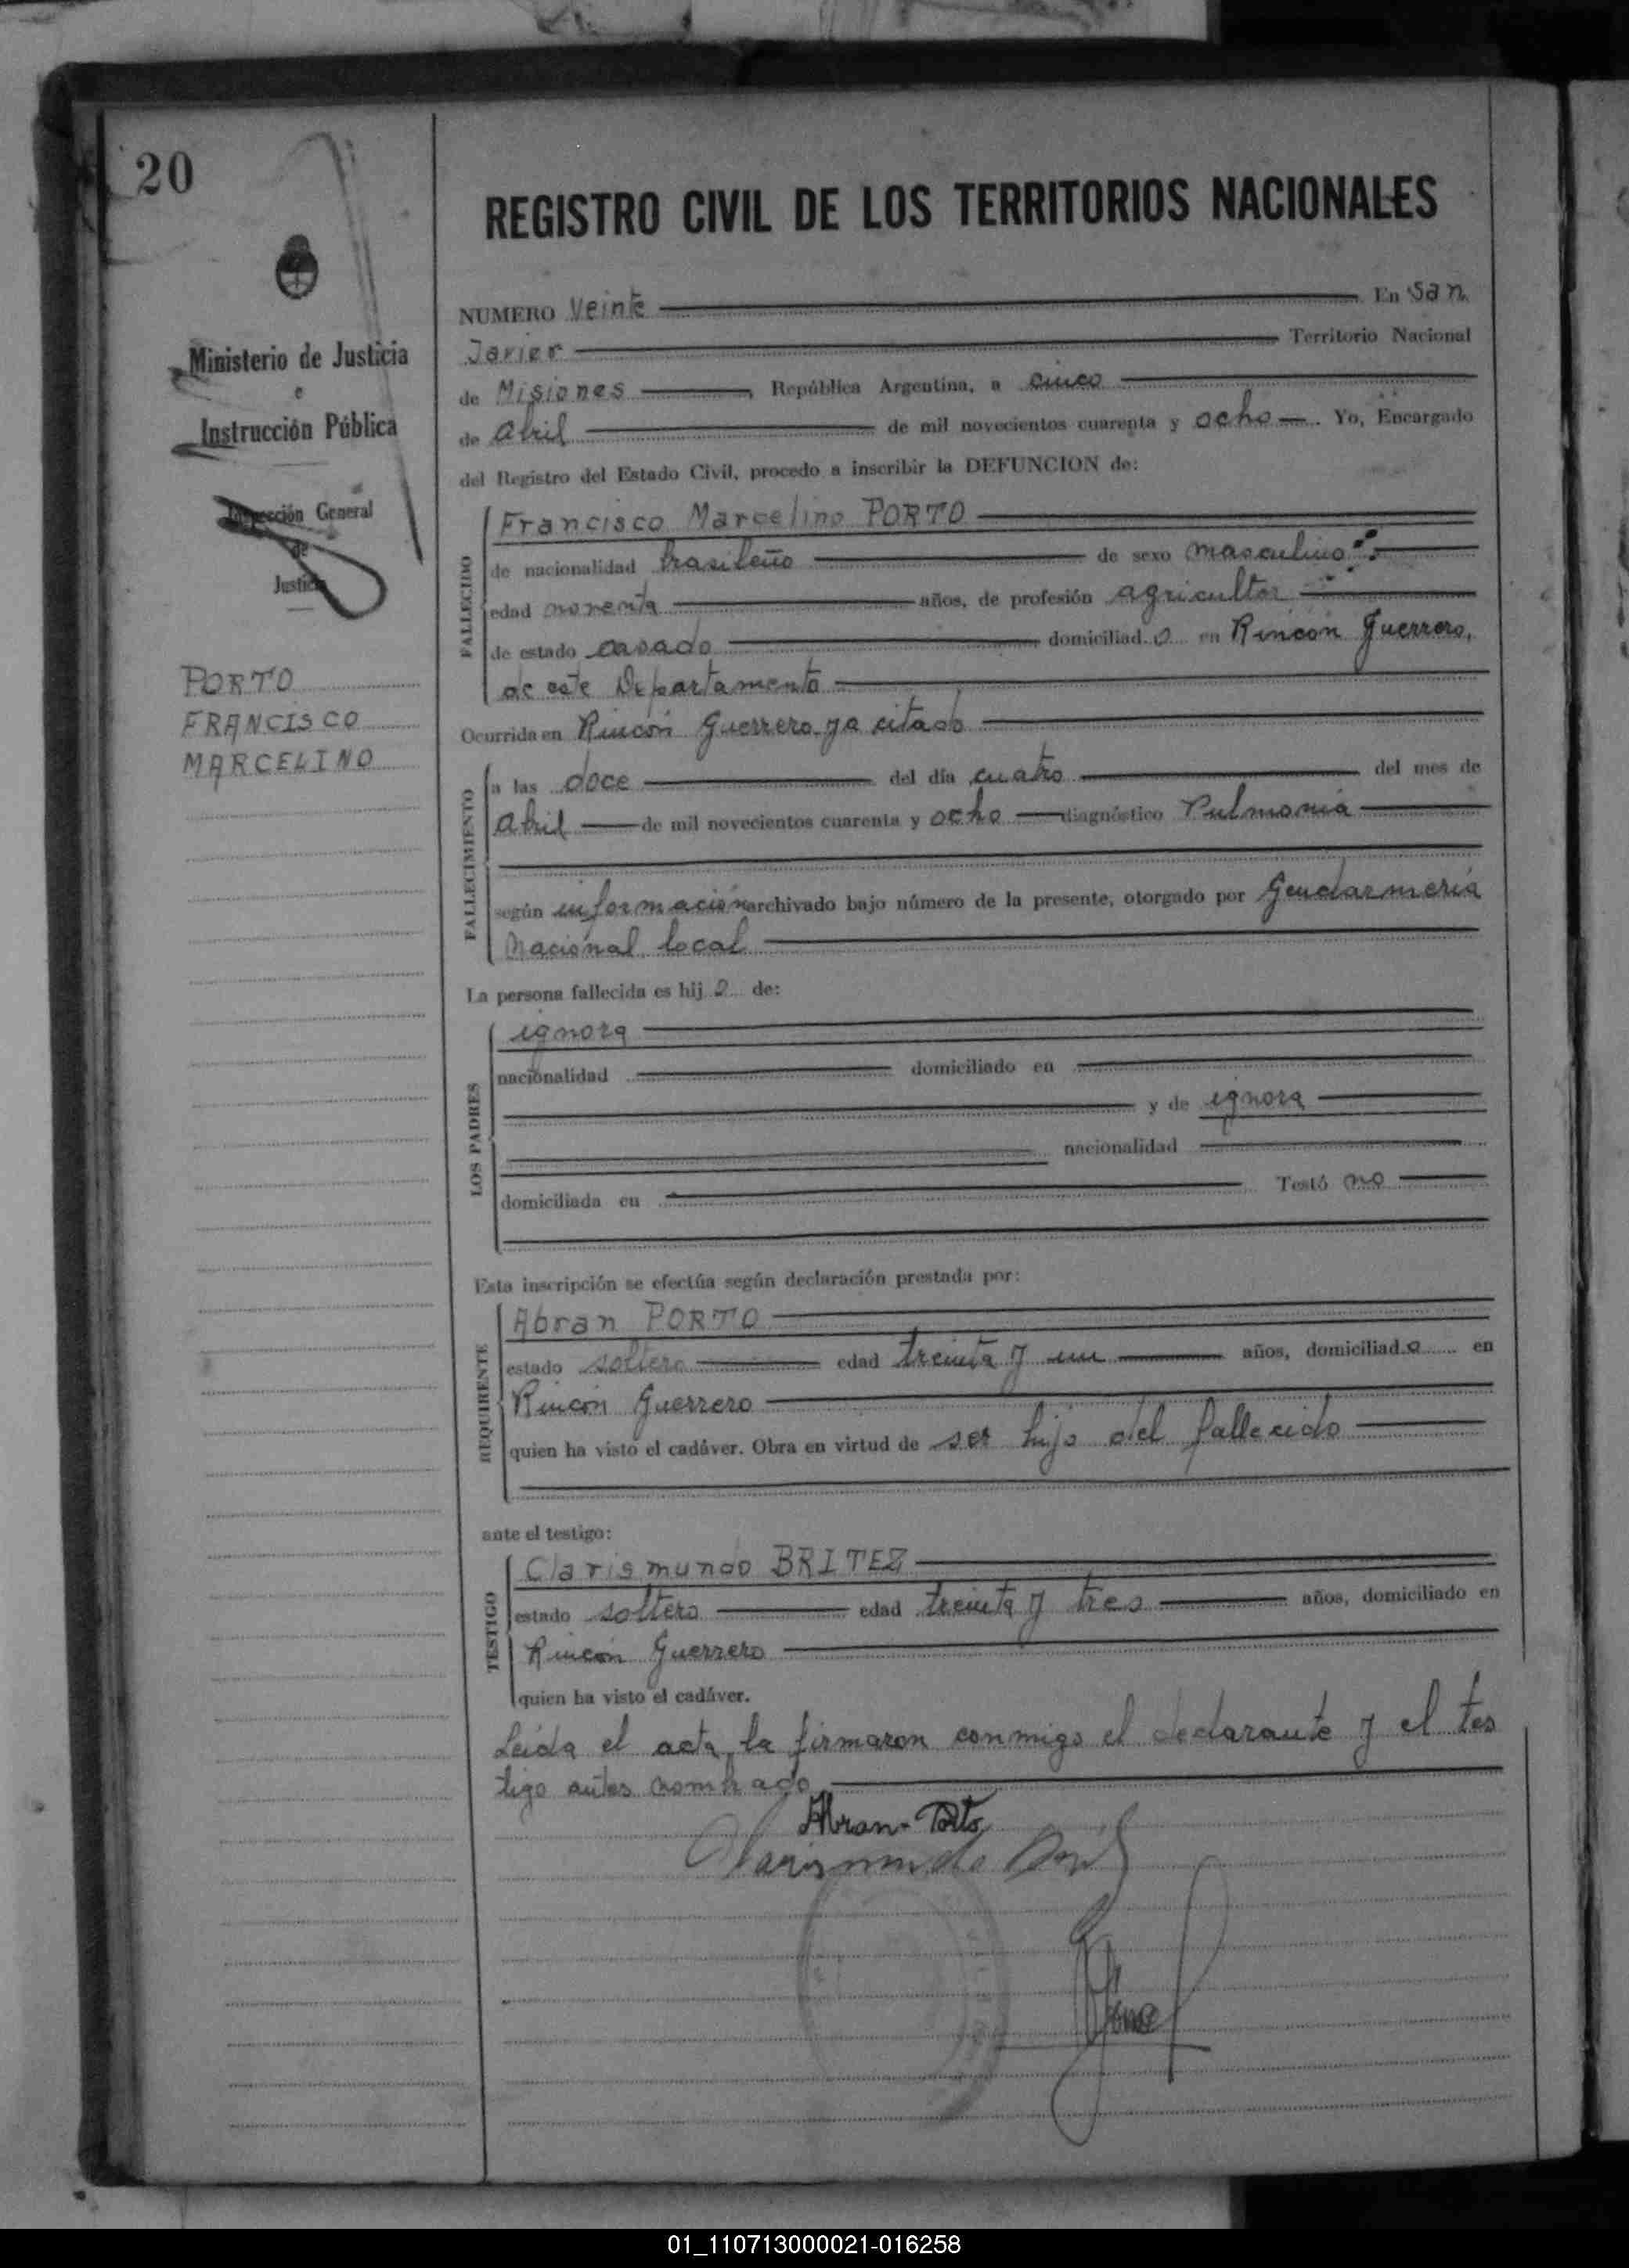 20
Ministerio de Justicia
e
Instrucción Pública
Inspección General
de
Justicia
PORTO
FRANCISCO
MARCELINO
REGISTRO CIVIL DE LOS TERRITORIOS NACIONALES
NUMERO Veinte En San
Javier Territorio Nacional
de Misiones, República Argentina, a cinco
de Abril de mil novecientos cuarenta y ocho. Yo, Encargado
del Registro del Estado Civil, procedo a inscribir la DEFUNCION de:
FALLECIDO
Francisco Marcelino PORTO
de nacionalidad brasileño de sexo masculino
edad noventa años, de profesión agricultor
de estado casado domiciliad o en Rincón Guerrero,
de este Departamento
Ocurrida en Rincón Guerrero ya citado
FALLECIMIENTO
a las doce del día cuatro del mes de
Abril de mil novecientos cuarenta y ocho diagnóstico Pulmonía
según información archivado bajo número de la presente, otorgado por Gendarmería
Nacional local
La persona fallecida es hij o de:
LOS PADRES
ignora
nacionalidad domiciliado en
y de ignora
nacionalidad
domiciliada en Testó no
Esta inscripción se efectúa según declaración prestada por:
REQUIRENTE
Abran PORTO
estado soltero edad treinta y un años, domiciliad o en
Rincón Guerrero
quien ha visto el cadáver. Obra en virtud de ser hijo del fallecido
ante el testigo:
TESTIGO
Clarismundo BRITEZ
estado soltero edad treinta y tres años, domiciliado en
Rincón Guerrero
quien ha visto el cadáver.
Leída el acta, la firmaron conmigo el declarante y el tes
tigo antes nombrado
Abran Porto
Clarismundo
01_110713000021-016258